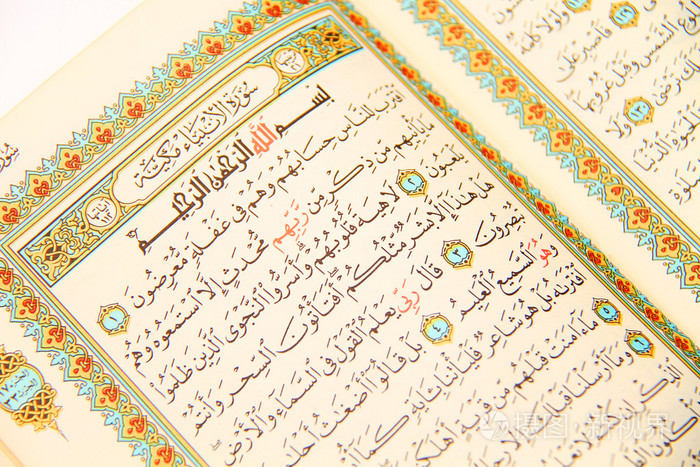 سُورَةُ الْأَنْبِيَاءِ مَكِّيَّةٌ
بِسْمِ اللَّهِ الرَّحْمَٰنِ الرَّحِيمِ
اقْتَرَبَ لِلنَّاسِ حِسَابُهُمْ وَهُمْ فِي غَفْلَةٍ مُعْرِضُونَ ١
مَا يَأْتِيهِمْ مِنْ ذِكْرٍ مِنْ رَبِّهِمْ مُحْدَثٍ إِلَّا اسْتَمَعُوهُ وَهُمْ
يَلْعَبُونَ ٢ لَاهِيَةً قُلُوبُهُمْ وَأَسَرُّوا النَّجْوَى الَّذِينَ ظَلَمُوا
هَلْ هَٰذَا إِلَّا بَشَرٌ مِثْلُكُمْ أَفَتَأْتُونَ السِّحْرَ وَأَنْتُمْ
تُبْصِرُونَ ٣ قَالَ رَبِّي يَعْلَمُ الْقَوْلَ فِي السَّمَاءِ وَالْأَرْضِ
وَهُوَ السَّمِيعُ الْعَلِيمُ ٤ بَلْ قَالُوا أَضْغَاثُ
افْتَرَاهُ بَلْ هُوَ شَاعِرٌ فَلْيَأْتِنَا بِآيَةٍ كَمَا
٥ مَا آمَنَتْ قَبْلَهُمْ مِنْ قَرْيَةٍ
٦ وَمَا أَرْسَلْنَا
وَلَوْلَا كَلِمَةٌ
فَاصْبِرْ عَلَى
الشَّمْسِ وَقَبْلَ غُرُوبِهَا
تَرْضَى
وَلَا
الدُّنْيَا
摄图·新视界